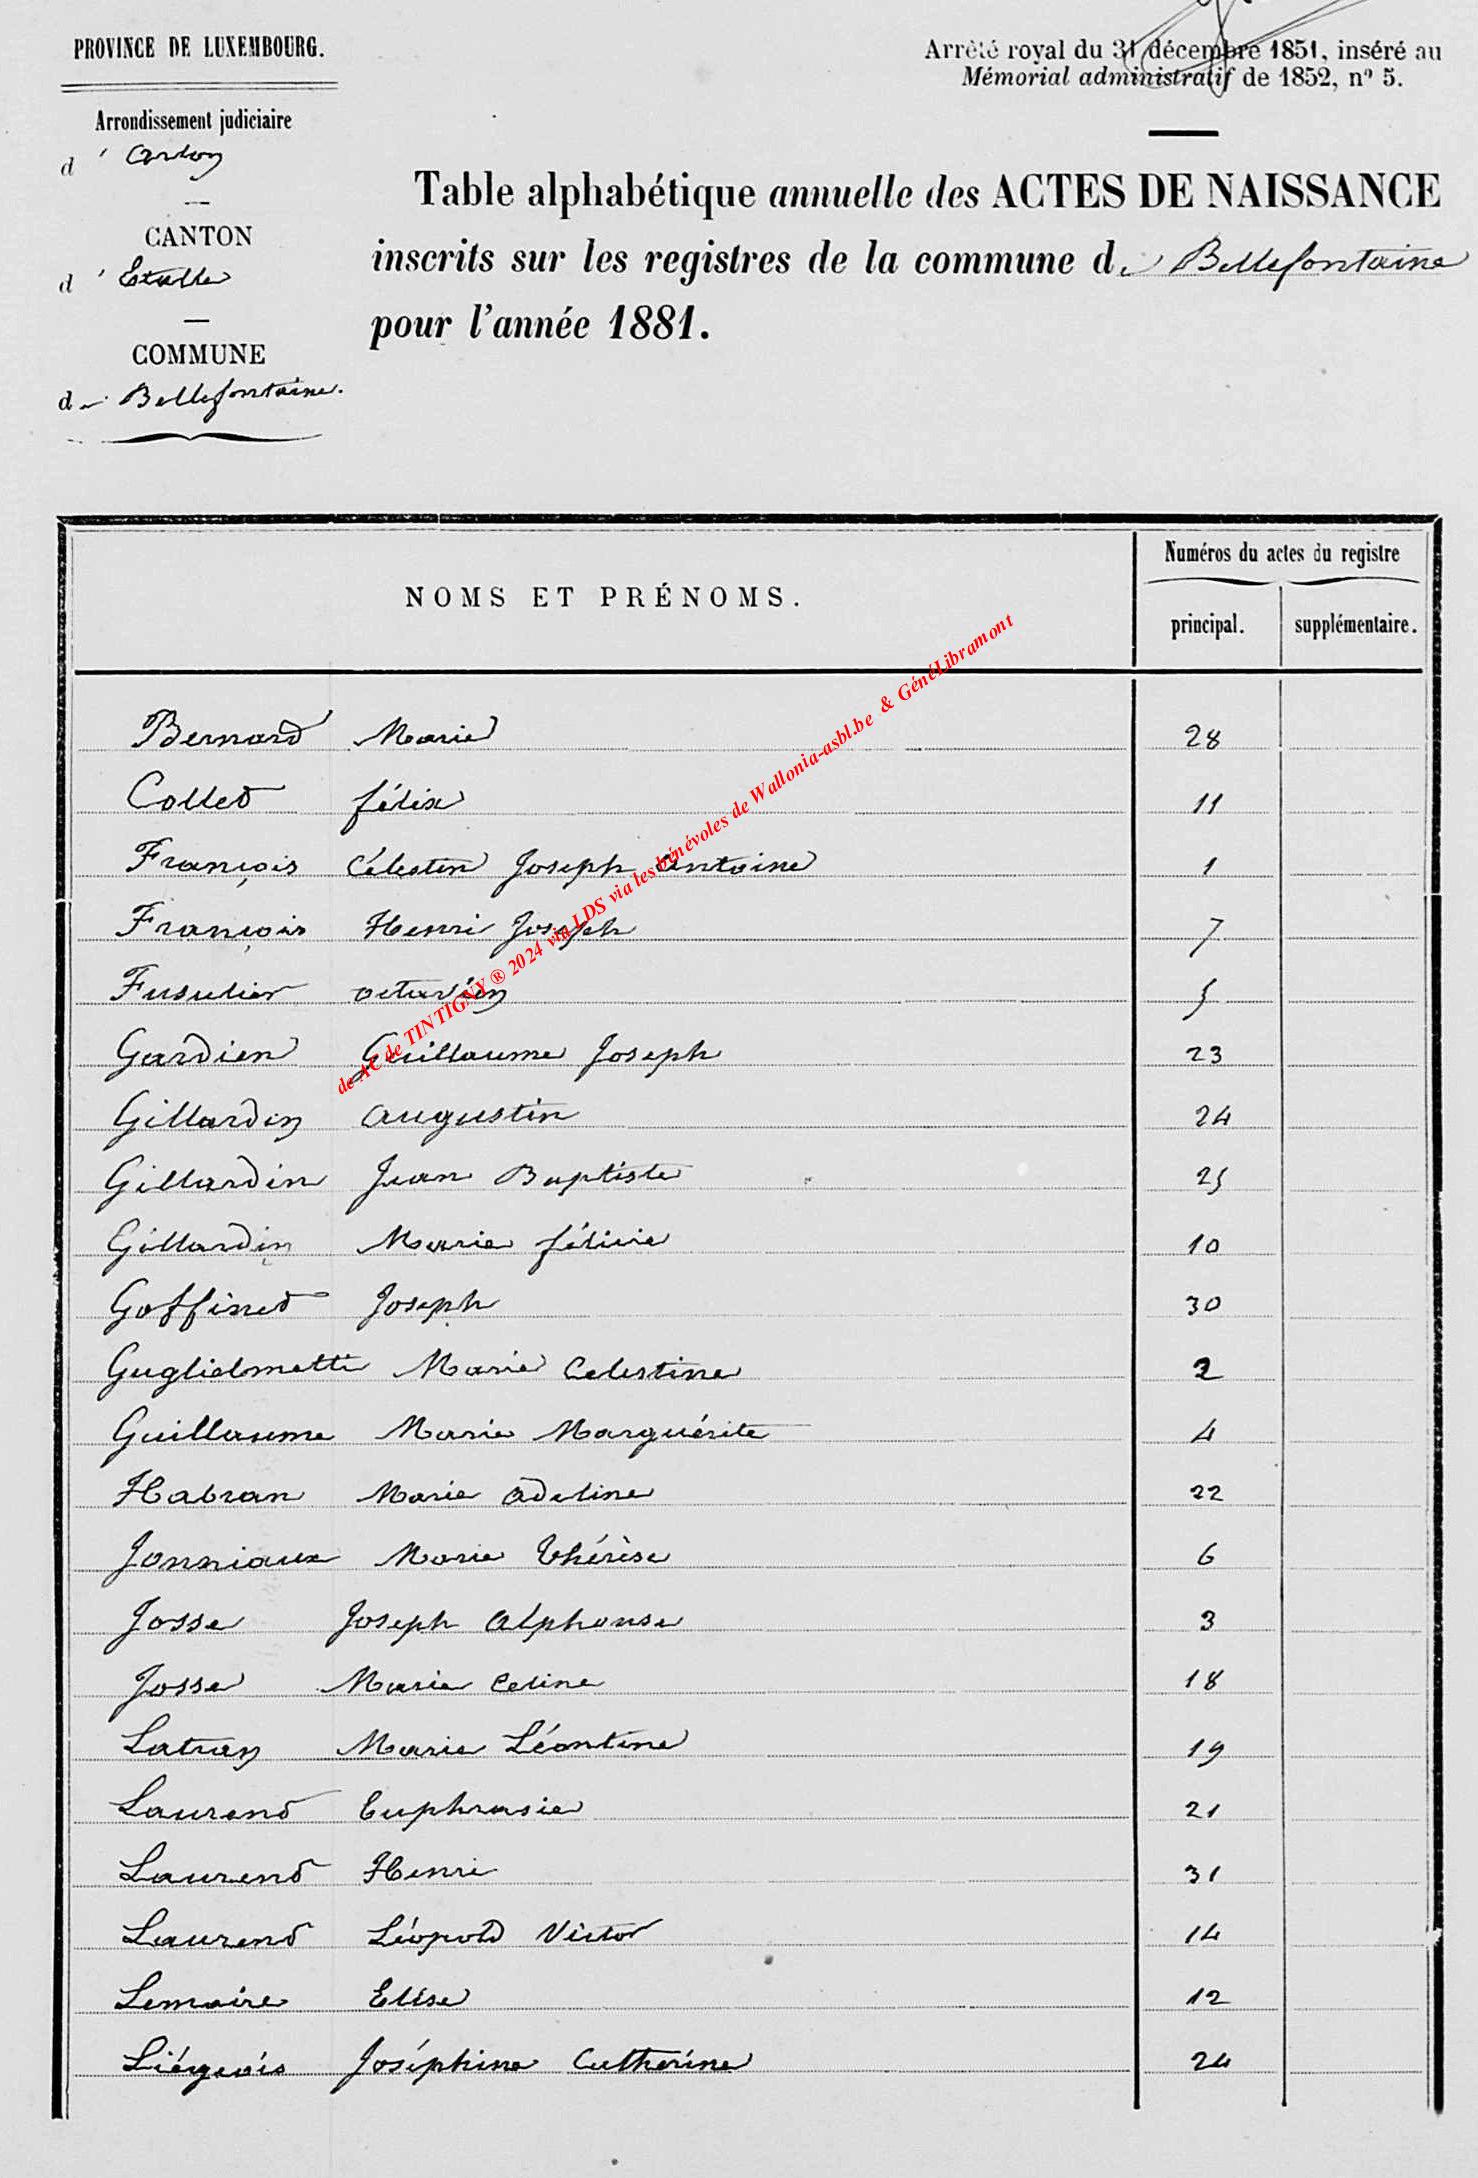 PROVINCE DE LUXEMBOURG.
Arrondissement judiciaire
d' Arlon
CANTON
d' Etalle
COMMUNE
de Bellefontaine.
Arrêté royal du 31 décembre 1851, inséré au
Mémorial administratif de 1852, nº 5.
Table alphabétique annuelle des ACTES DE NAISSANCE
inscrits sur les registres de la commune de Bellefontaine
pour l'année 1881.
NOMS ET PRÉNOMS.
Numéros du actes du registre
principal. supplémentaire.
Bernard Marie 28
Collet félix 11
François Célestin Joseph Antoine 1
François Henri Joseph 7
Fusulier octavien 5
Gardien Guillaume Joseph 23
Gillardin Augustin 24
Gillardin Jean Baptiste 25
Gillardin Marie félicie 10
Goffinet Joseph 30
Guglielmetti Marie Celestine 2
Guillaume Marie Marguérite 4
Habran Marie Adeline 22
Jonniaux Marie Thérèse 6
Josse Joseph Alphonse 3
Josse Marie Celine 18
Latran Marie Léontine 19
Laurent Euphrasie 21
Laurent Henri 31
Laurent Léopold Victor 14
Lemaire Elise 12
Liégeois Joséphine Catherine 24
de AC de TINTIGNY ® 2024 via LDS via les bénévoles de Wallonia-asbl.be & GénéLibramont